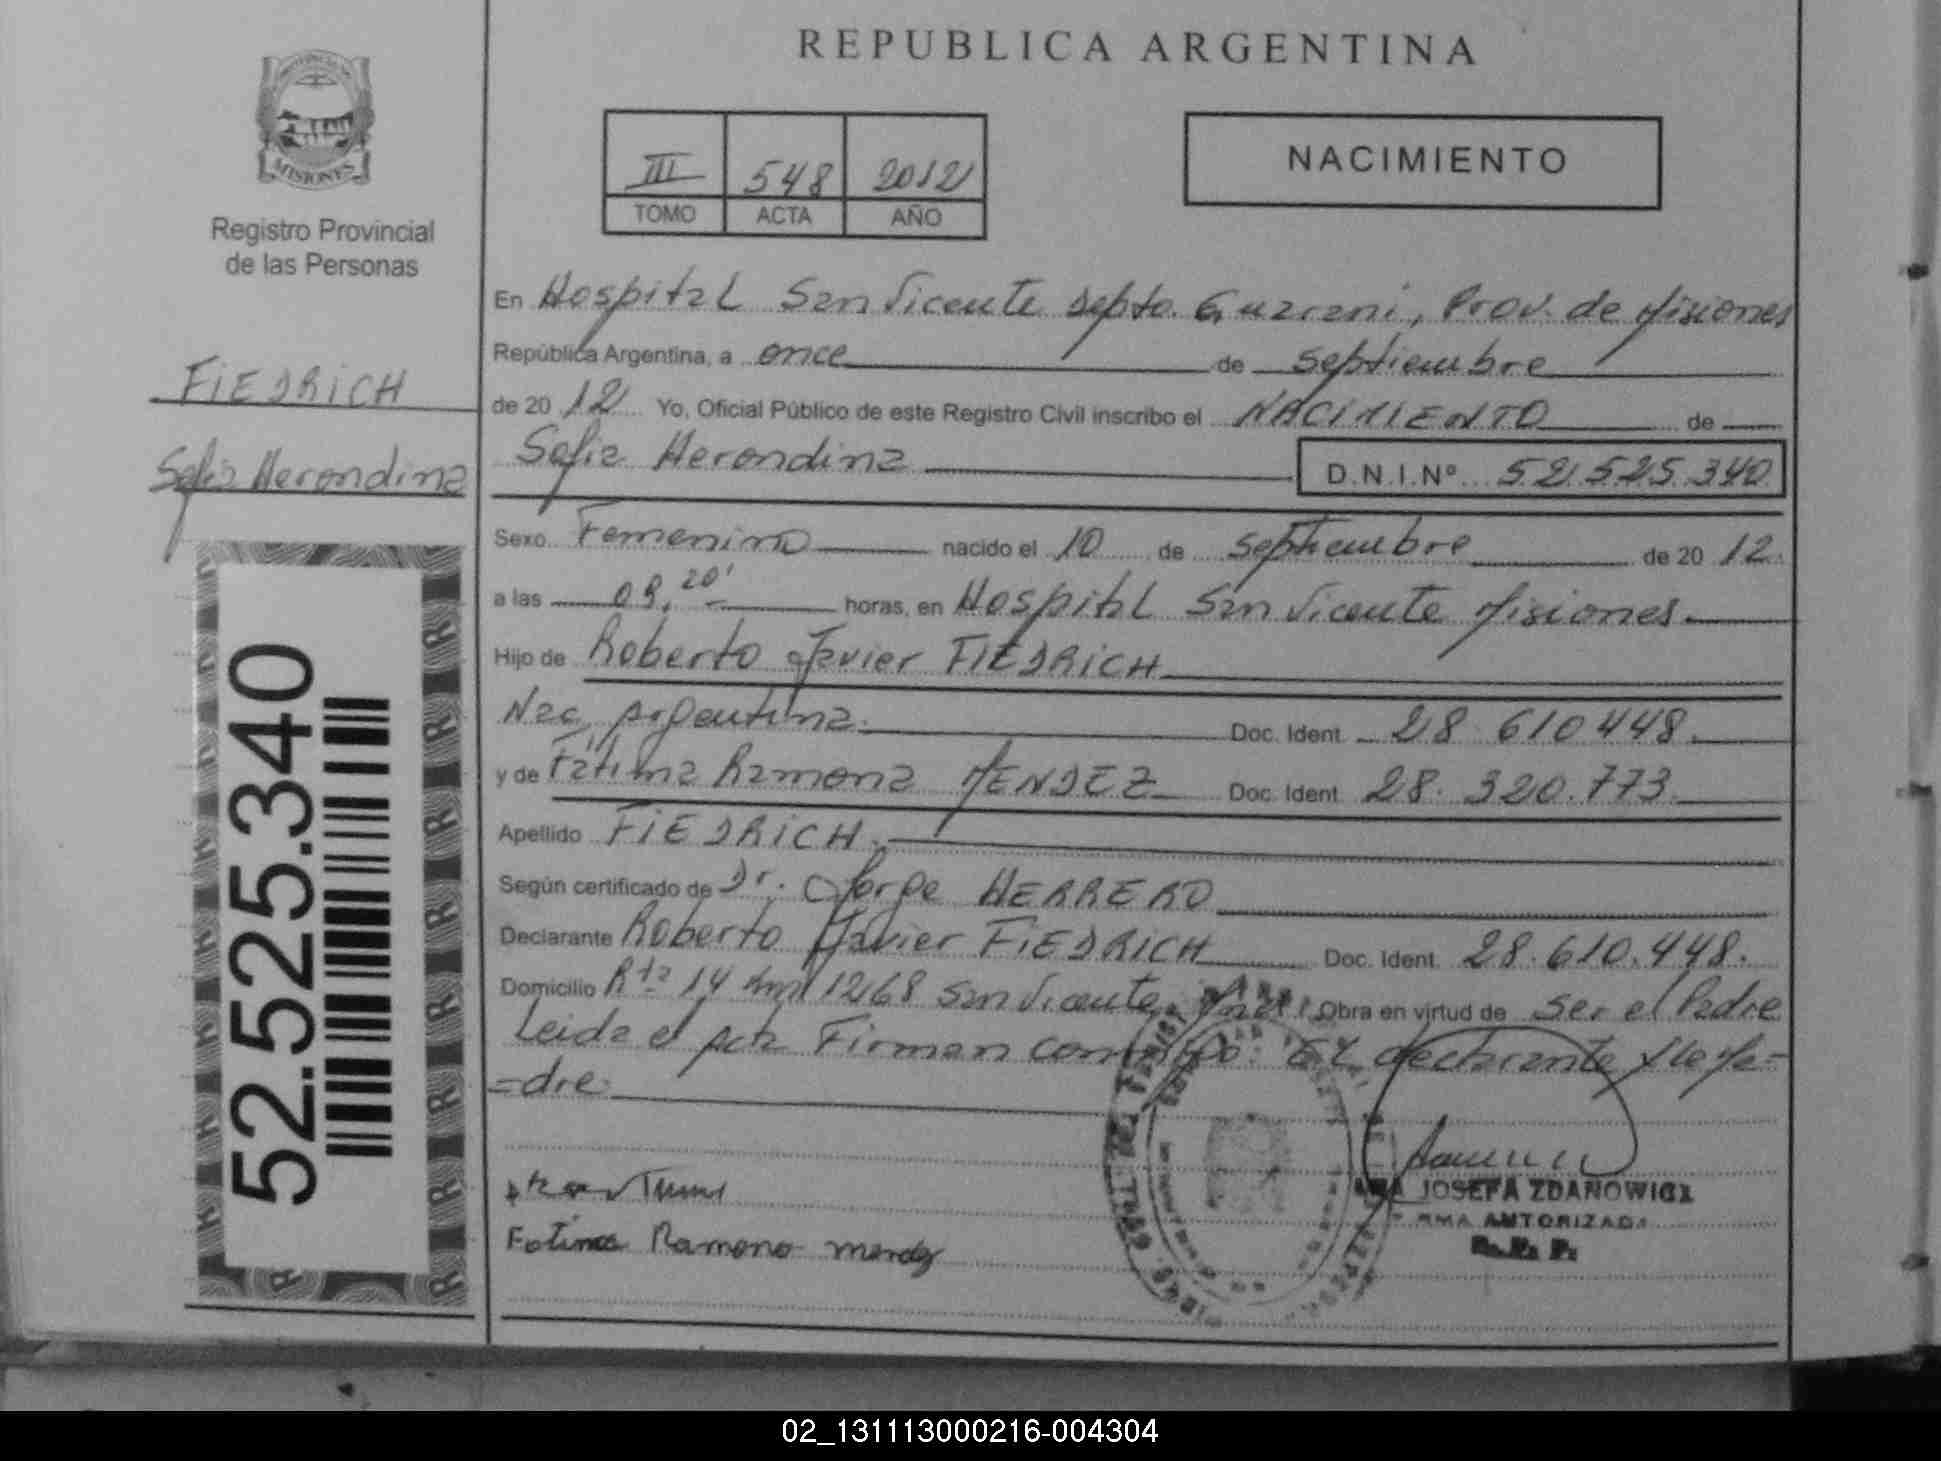 REPUBLICA ARGENTINA
MISIONES
Registro Provincial
de las Personas
III 548 2012
TOMO ACTA AÑO
NACIMIENTO
FIEDRICH
Sofia Herondina
52.525.340
En Hospital San Vicente Depto. Guarani, Prov. de Misiones
República Argentina, a once de septiembre
de 20 12 Yo, Oficial Público de este Registro Civil inscribo el NACIMIENTO de
Sofia Herondina D.N.I.Nº 52.525.340
Sexo Femenino nacido el 10 de septiembre de 20 12.
a las 09,20' horas, en Hospital San Vicente Misiones.
Hijo de Roberto Javier FIEDRICH
Nac. Argentina. Doc. Ident. 28.610.448.
y de Fátima Ramona MENDEZ Doc. Ident. 28.320.773.
Apellido FIEDRICH.
Según certificado de Dr. Jorge HERRERO
Declarante Roberto Javier FIEDRICH Doc. Ident. 28.610.448.
Domicilio Rta 14 km 1268 San Vicente, Mnes. Obra en virtud de ser el Padre
Leida el Acta Firman conmigo: El declarante y la Ma=
=dre.
Fatima Ramona Mendez
JOSEFA ZDANOWICZ
FIRMA AUTORIZADA
R. P. P.
02_131113000216-004304